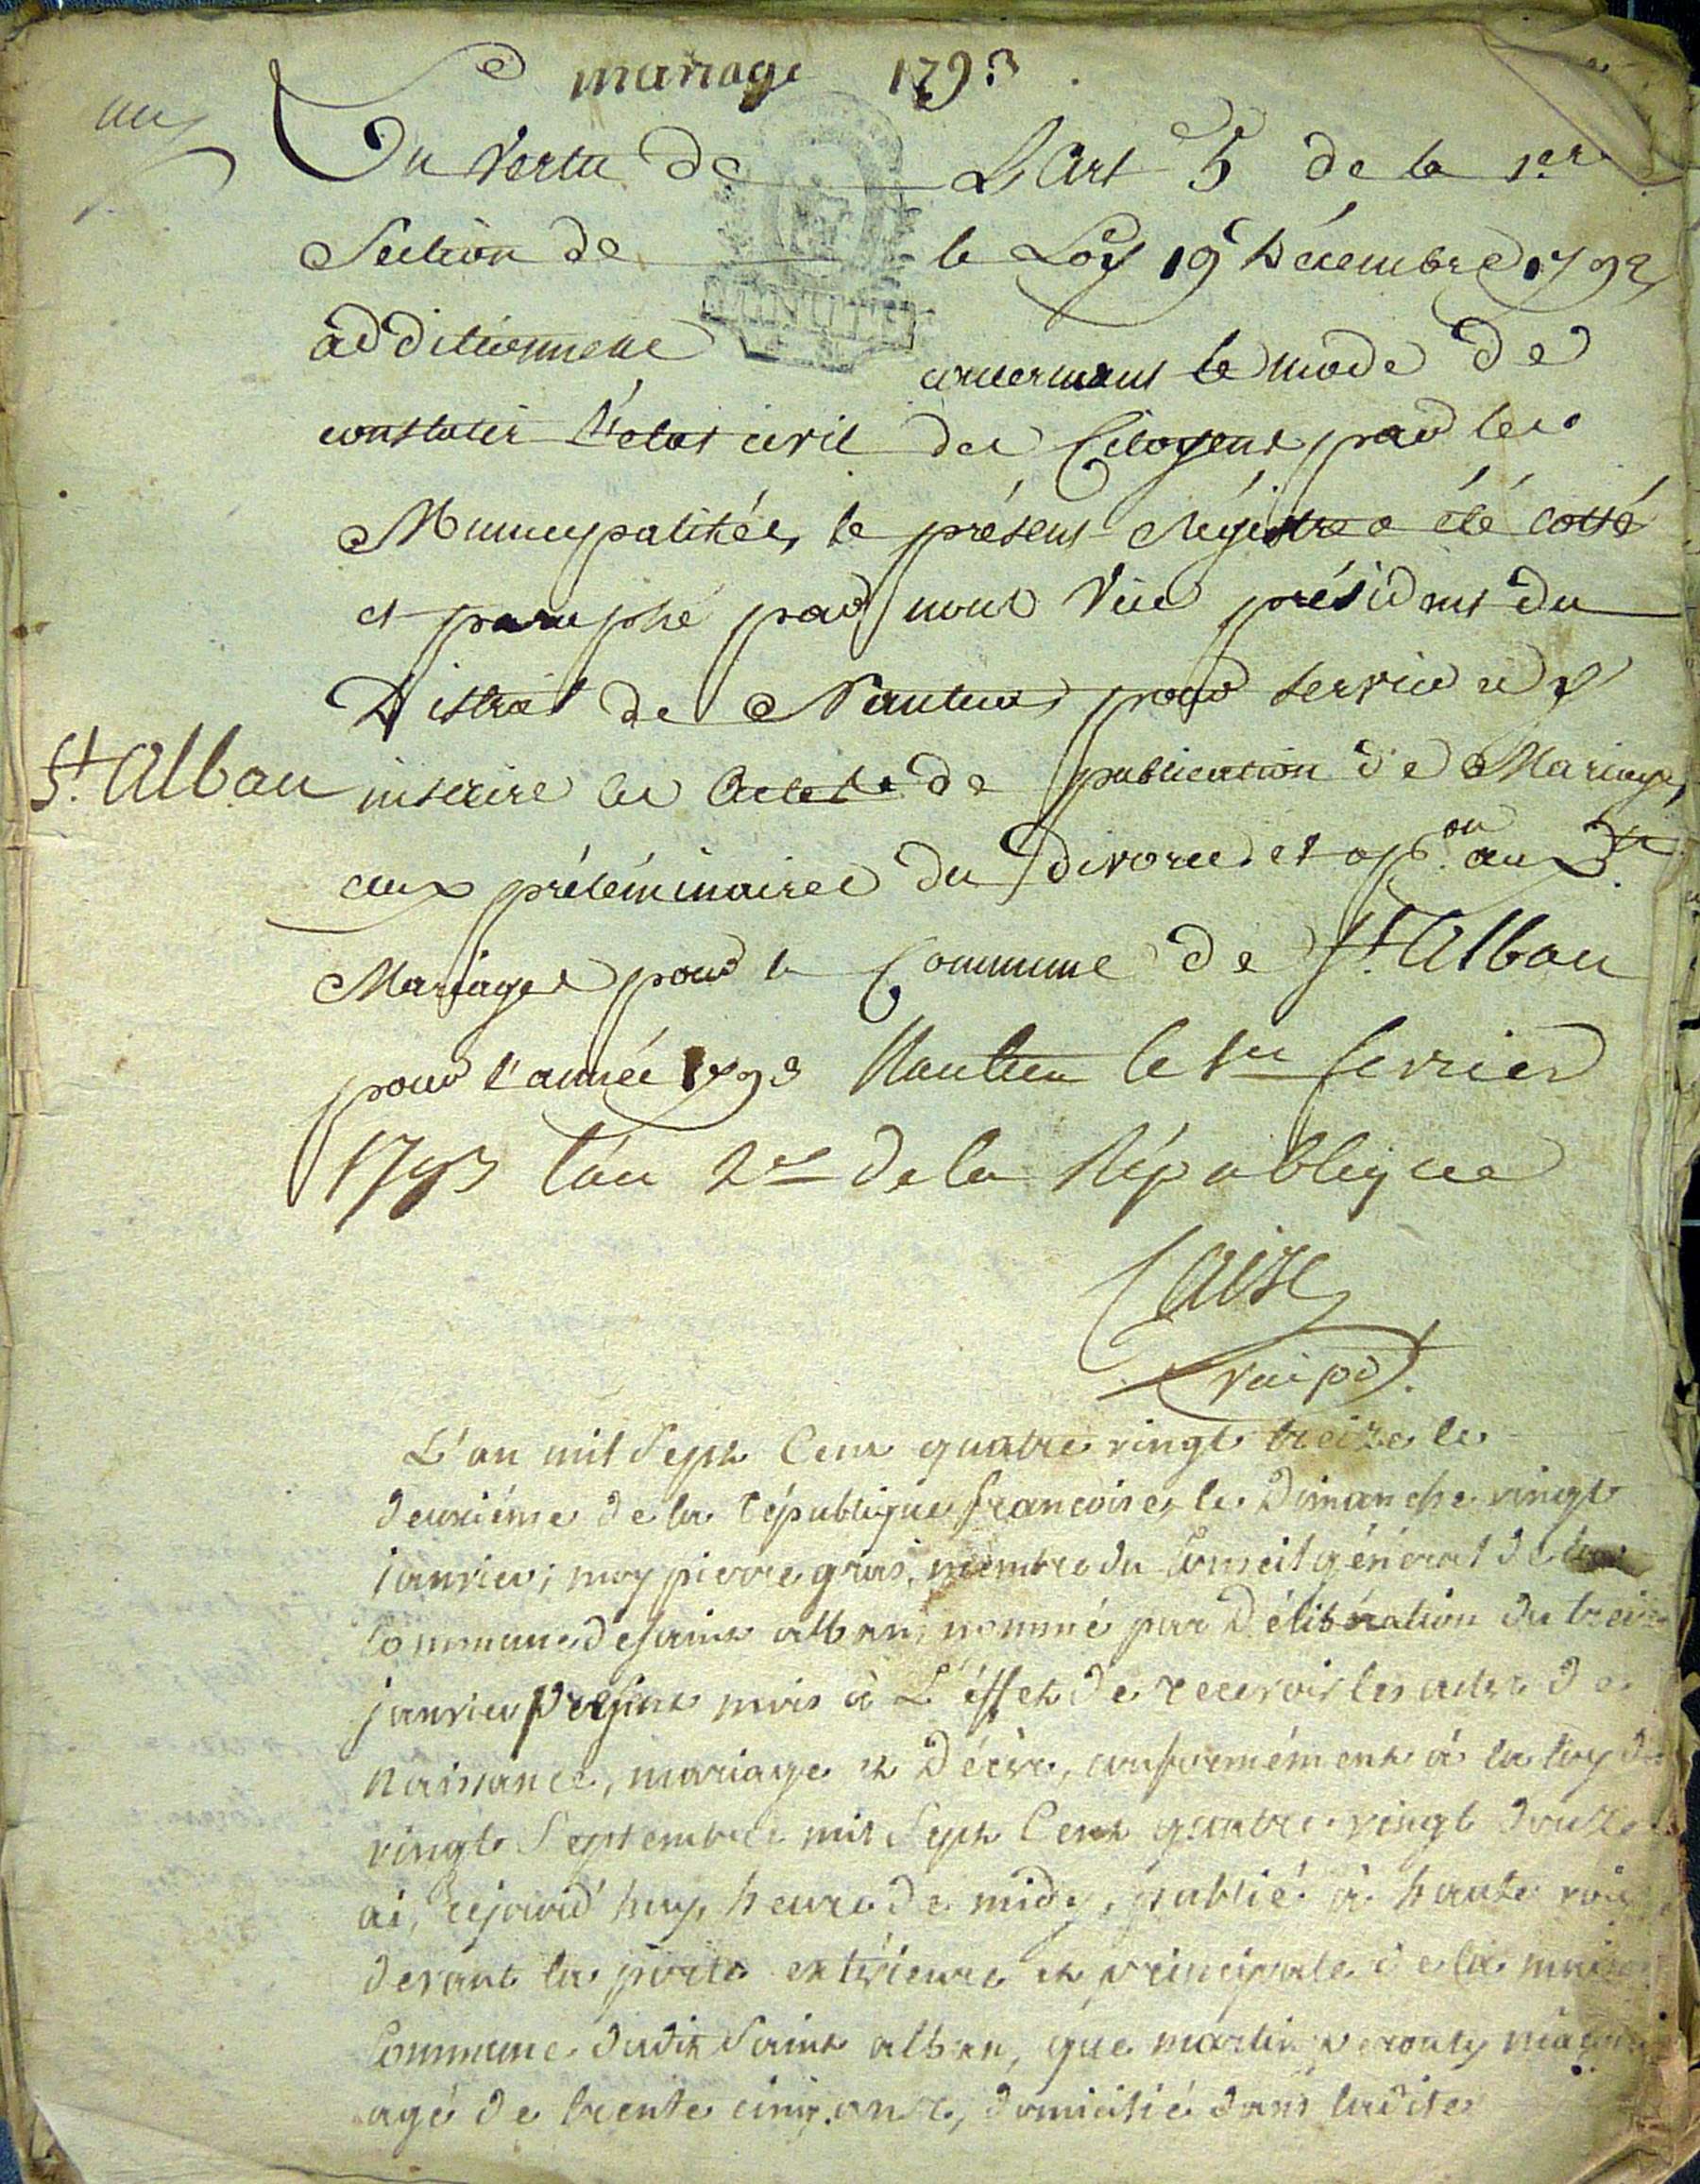 mariage 1793
En vertu de L'Art 5 de la 1ere
Section de la Loy 19 Décembre 1792
additionnelle concernant le mode de
constater l'état civil des Citoyens par les
Municipalités, le présent Régistre a été cotté
et paraphé par nous Vice président du
District de Nantua, pour servir à y
St. Alban
inscrire les Actes de publication de Mariage,
aux préléminaires du divorce et opon. aux dts.
Mariages pour la Commune de St. Alban
pour l'année 1793 Nantua le 1er fevrier
1793 l'an 2e de la République
vice pd.
L'an mil sept Cent quatre vingt treize le
deuxiéme de la république francoise, le Dimanche vingt
janvier; moy pierre gras, membre du Conseil général de la
Commune de saint alban, nommé par Délibération du treize
janvier présent mois à L'éffet de recevoir les actes de
Naissance, mariage et Décès, conformément à la loy du
vingt Septembre mil Sept Cent quatre vingt douze
ai, cejourd'huy, heure de midy, publié à haute voix
devant la porte extérieure et principale de la maison
Commune dudit Saint alban, que martin
agé de trente cinq ans, domicilié dans ladite